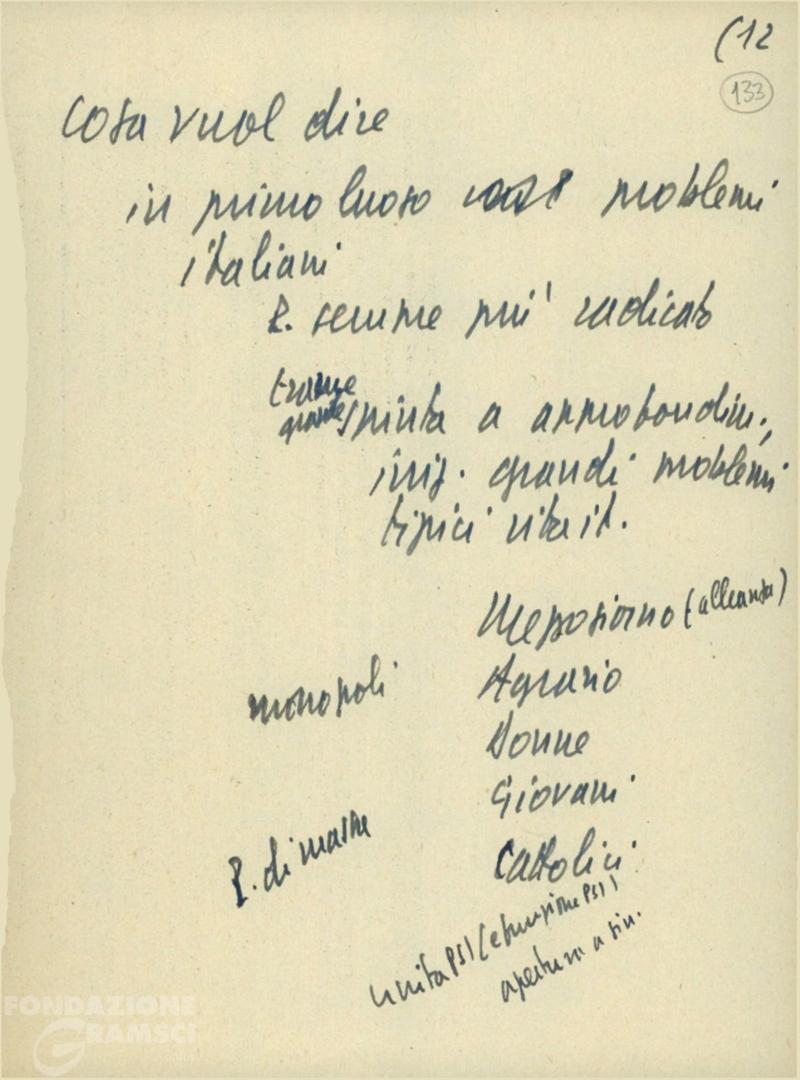 (12
133
Cosa vuol dire
in primo luogo problemi
italiani
P. sempre più radicato
trarre
grande spinta a approfondim.,
iniz. grandi problemi
tipici vita it.
Mezzogiorno (alleanza)
Agrario
monopoli
Donne
Giovani
P. di massa
Cattolici
unità PSI (e funzione PSI)
apertura a sin.
FONDAZIONE
GRAMSCI